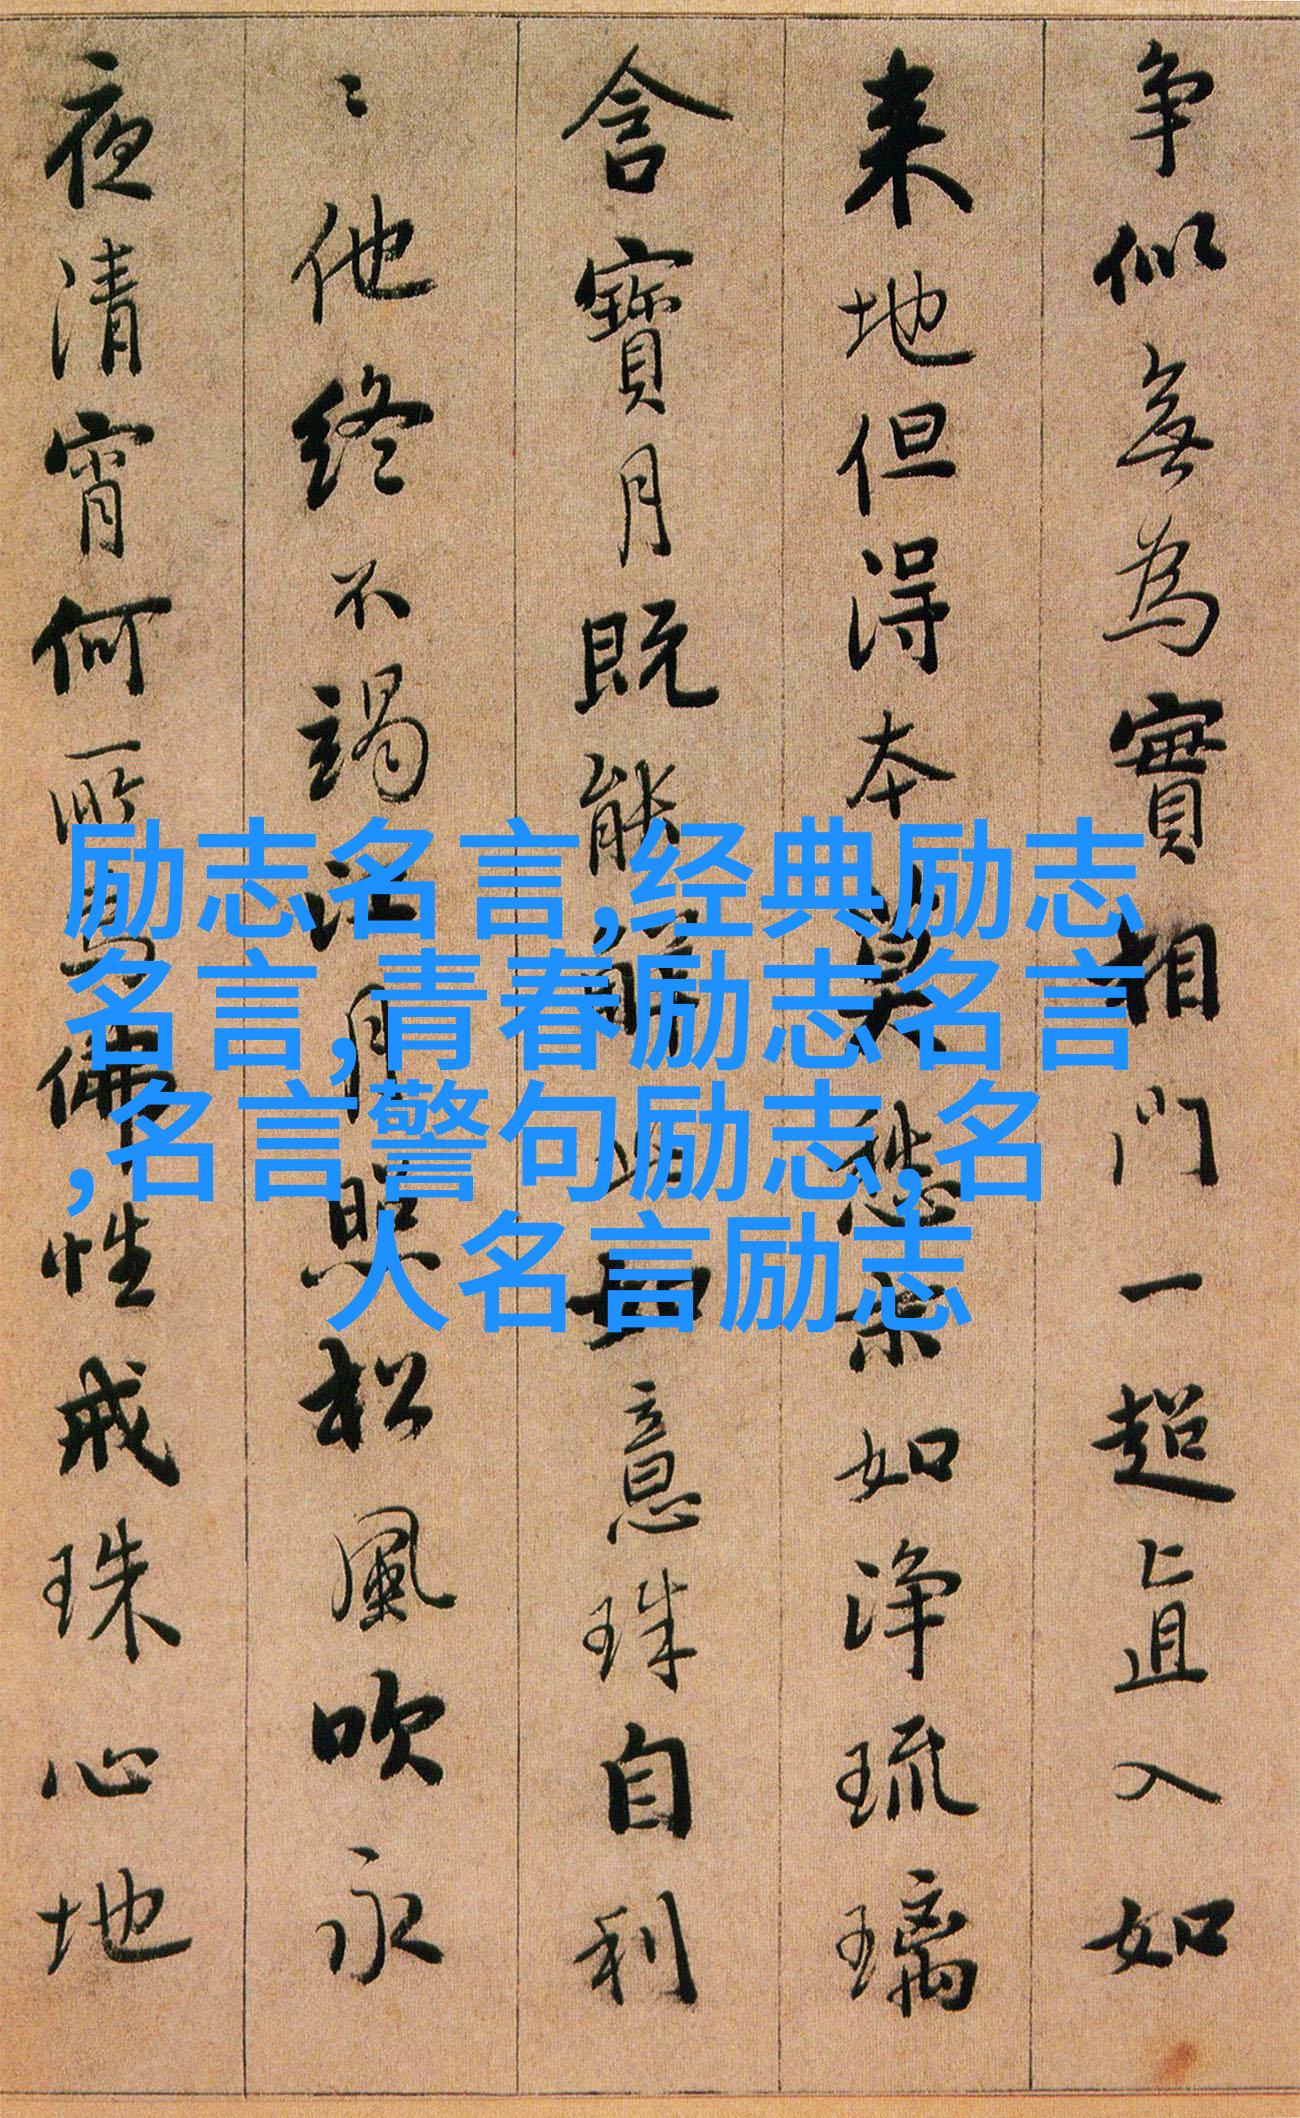 争似無為實相門一超直入如
来地但得本莫愁末如淨琉璃
含寶月既能解此如意珠自利
〻他終不竭江月照松風吹永
夜清宵何所為佛性戒珠心地
励志名言,经典励志
名言,青春励志名言
,名言警句励志,名
人名言励志